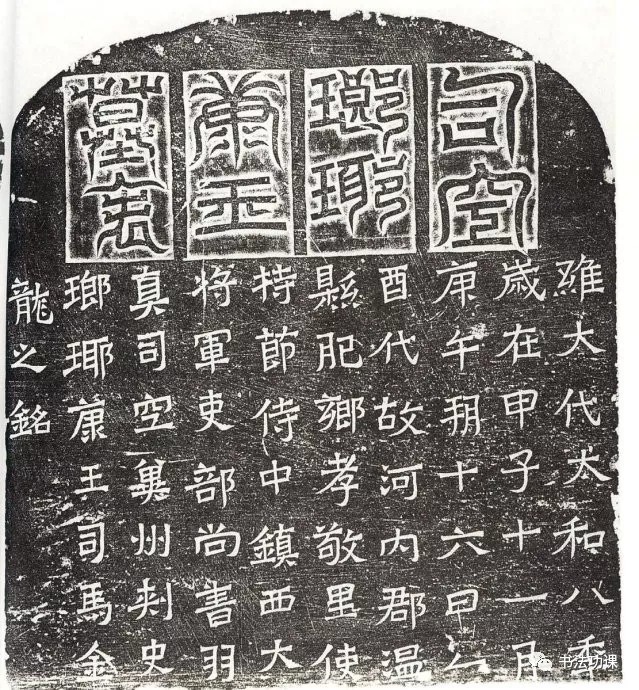 司空
瑯琊
康王
墓表
維大代太和八年
歲在甲子十一月
庚午朔十六日乙
酉代故河内郡温
縣肥鄉孝敬里使
持節侍中鎮西大
將軍吏部尚書羽
真司空冀州刺史
瑯琊康王司馬金
龍之銘
书法功课